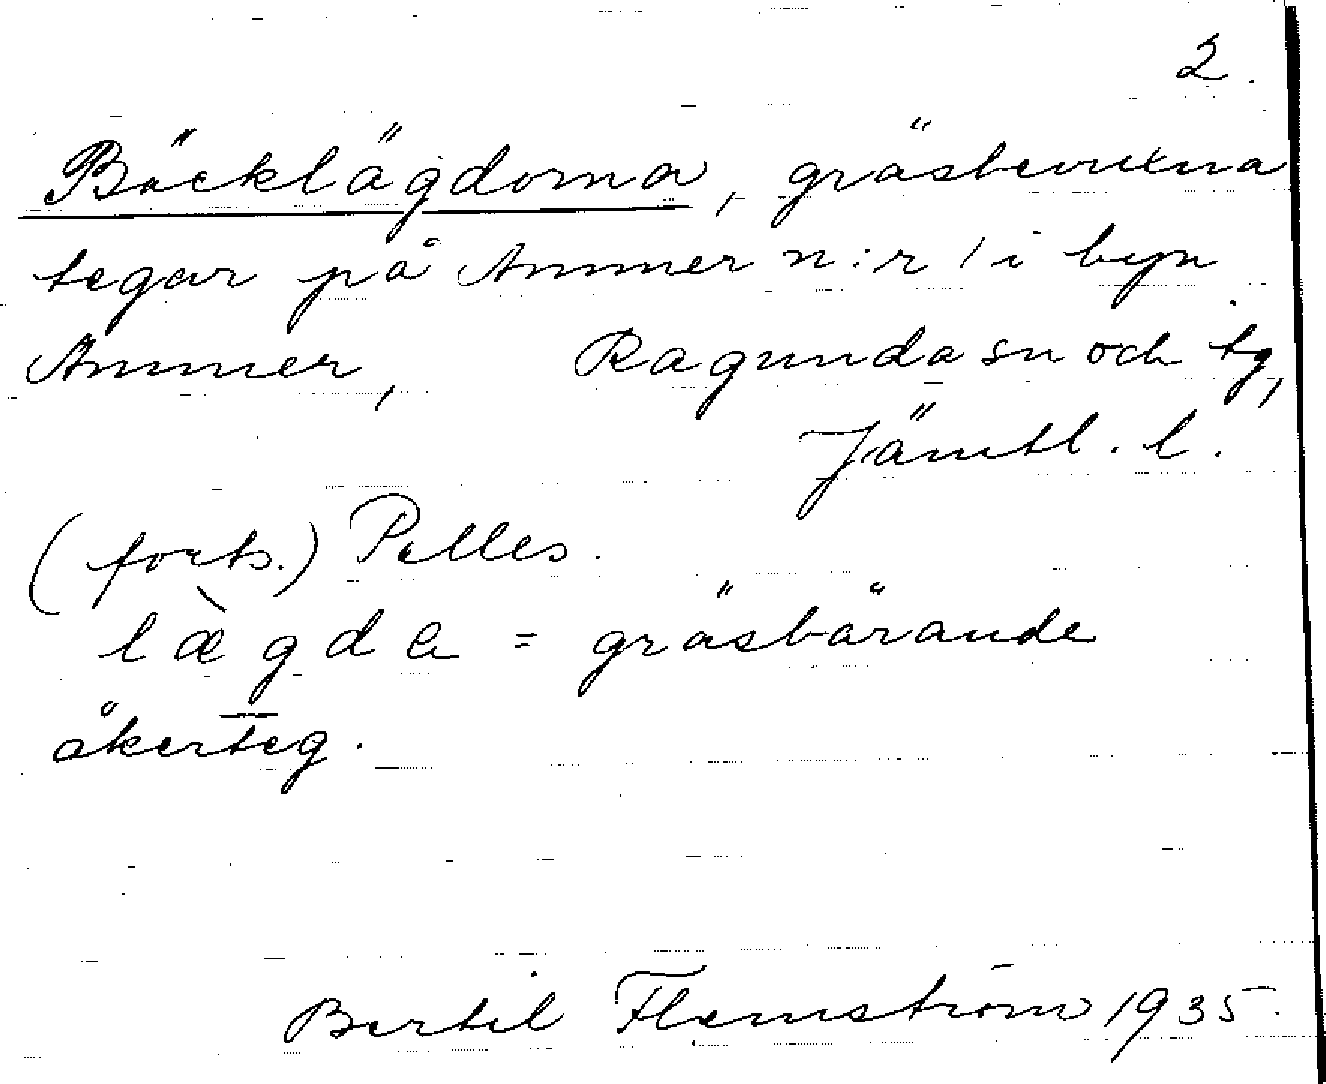 2.
Bäcklägdorna, gräsbevuxna
tegar på Ammer n:r 1 i byn
Ammer, Ragunda sn och tg,
Jämtl. l.
(forts.) Pelles.
læ̀gda = gräsbärande
åkerteg.
Bertil Flemström 1935.